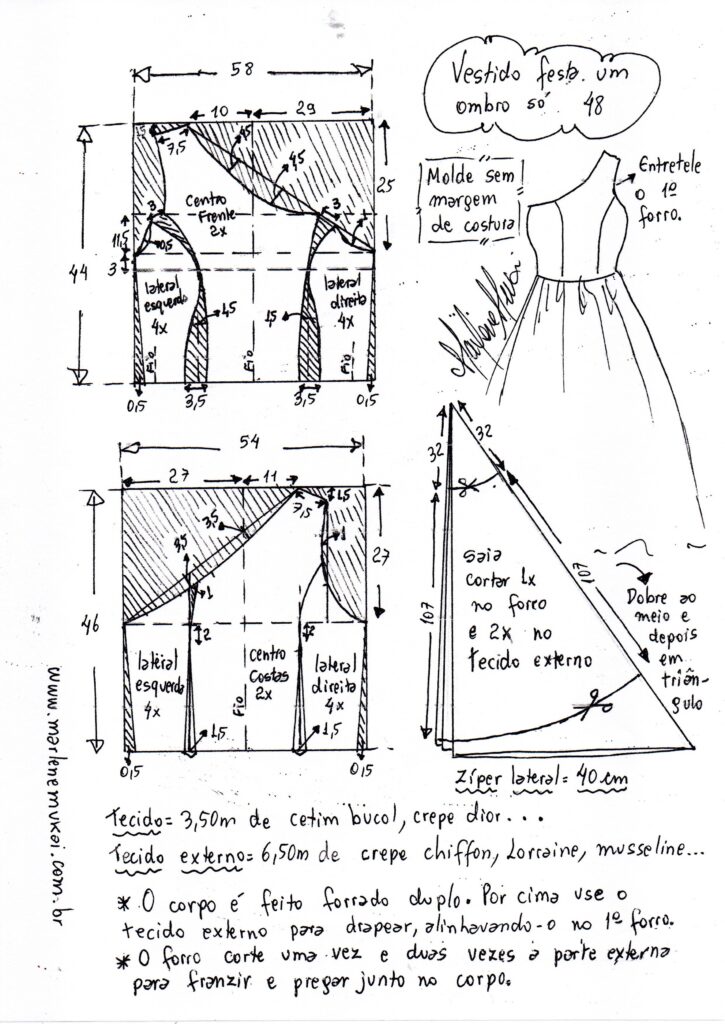 Vestido festa um
ombro só 48
Molde sem
margem
de costura
Entretele
o 1º
forro.
58
10
29
1,5
7,5
4,5
4,5
25
44
3
3
11,5
0,5
3
Centro
Frente
2x
lateral
esquerda
4x
1,5
1,5
lateral
direita
4x
Fio
Fio
Fio
0,5
3,5
3,5
0,5
54
27
11
1,5
7,5
3,5
3,5
1
1
27
46
2
2
lateral
esquerda
4x
Centro
Costas
2x
lateral
direita
4x
Fio
0,5
1,5
1,5
0,5
32
32
107
107
saia
cortar 1x
no forro
e 2x no
tecido externo
Dobre ao
meio e
depois
em
triân-
gulo
Zíper lateral = 40 cm
www.marlenemukai.com.br
Tecido = 3,50m de cetim bucol, crepe dior...
Tecido externo = 6,50m de crepe chiffon, Lorraine, musseline...
* O corpo é feito forrado duplo. Por cima use o
tecido externo para drapear, alinhavando-o no 1º forro.
* O forro corte uma vez e duas vezes a parte externa
para franzir e pregar junto no corpo.